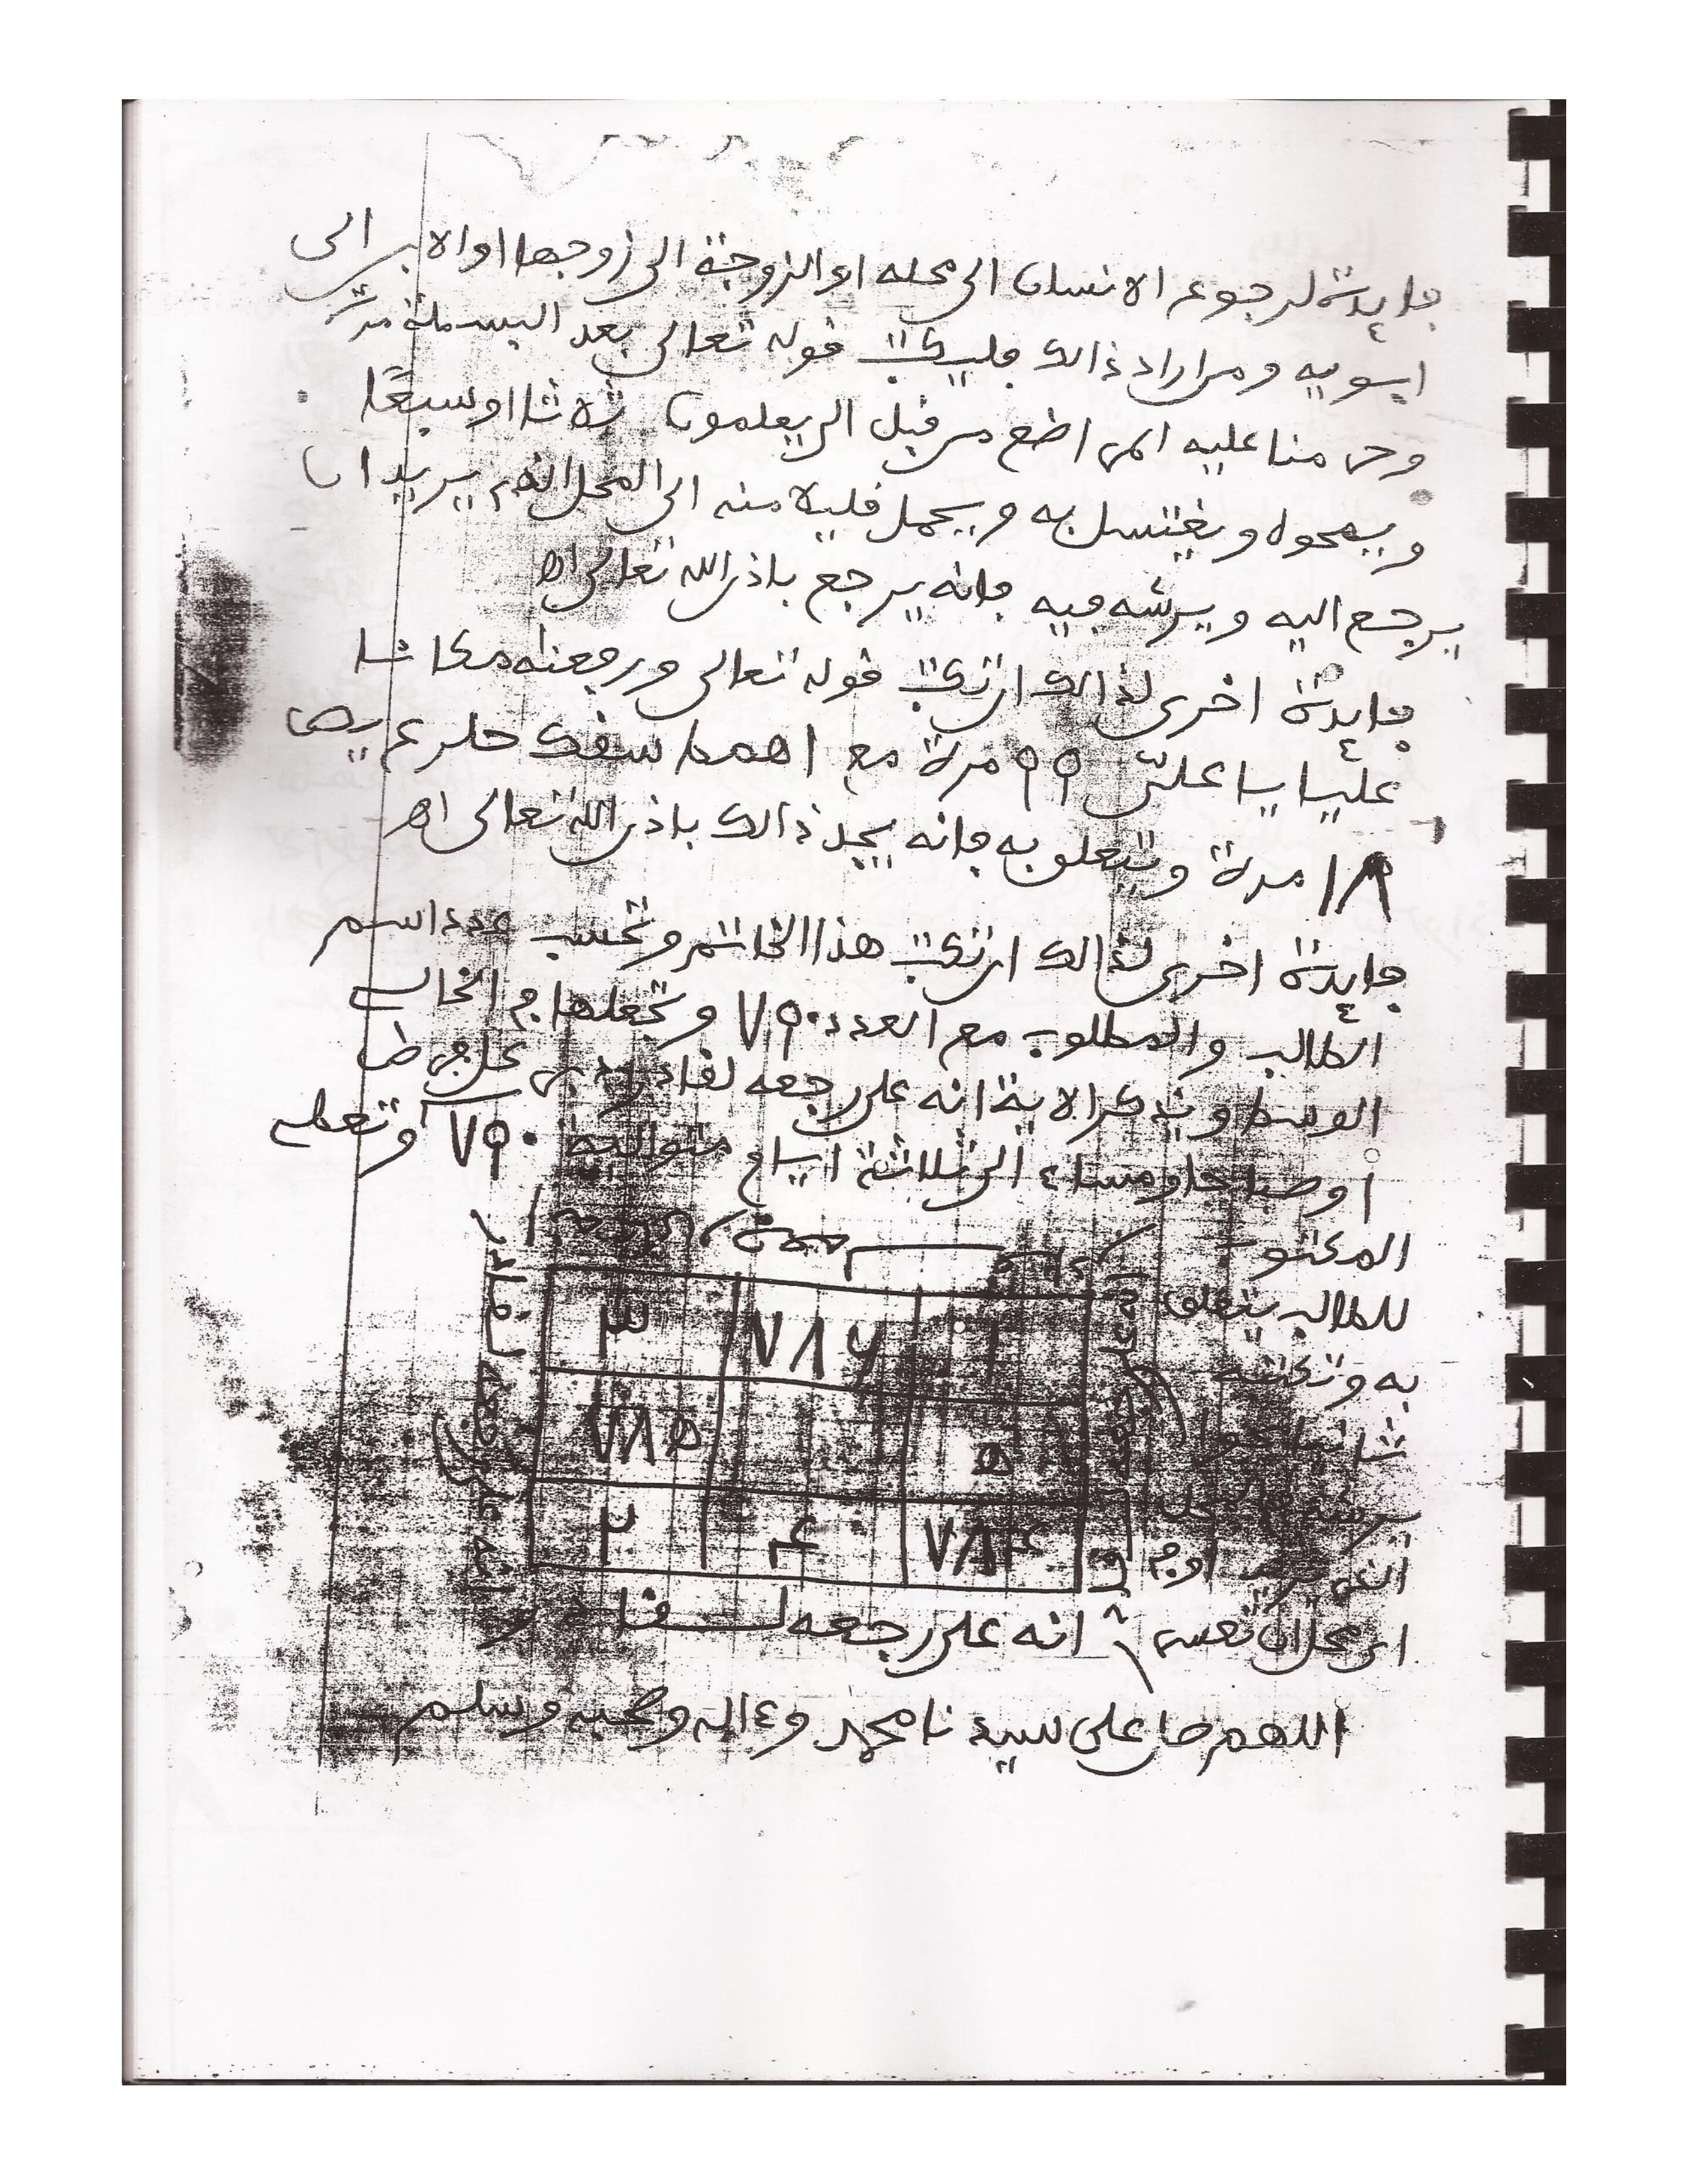 فايدة لرجوع الانسان الى محله او الزوجة الى زوجها او الابن الى
ابويه ومن اراد ذالك فليكتب قوله تعالى بعد البسملة مرة
وحرمنا عليه المراضع من قبل الى يعلمون ثلاثا او سبعًا
ويمحوه ويغتسل به ويحمل قليلا منه الى المحل الذى يريد ان
يرجع اليه ويرشه فيه فانه يرجع باذن الله تعالى اه
فايدة اخرى لذالك ان تكتب قوله تعالى ورفعناه مكانا
عليا يا علىّ ٩٩ مرة مع
١٨ مرة ويتعلق به فانه يجد ذالك باذن الله تعالى اه
فايدة اخرى لذالك ان تكتب هذا الخاتم وتحسب عدد اسم
الطالب والمطلوب مع العدد ٧٩٠ وتجعلها فى الخالى
الوسط وتذكر الاية انه على رجعه لقادر
او صباحا ومساء الى ثلاثة ايام متوالية ٧٩٠ وتعطى
المكتوب
للطالب يتعلق
به وتكتبه
ثانيا
يرشه المحل
الذى يريد او فى
اى محل ان تعسر
٣ ٧٨٦ ١
٧٨٥ ٥
٢ ٤ ٧٨٤
انه على رجعه لقادر
اللهم صل على سيدنا محمد وءاله وصحبه وسلم